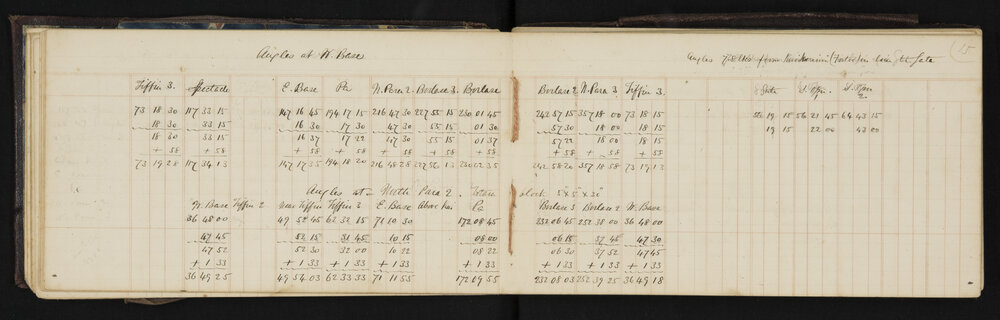 Angles at W. Base
Tiffin 3. Spectacle E. Base Pk N. Para 2. Borlase 3. Borlase
73 18 30 107 33 15 147 16 45 194 17 15 216 47 30 227 55 15 230 01 45
18 30 33 15 16 30 17 30 47 30 55 15 01 30
18 30 33 15 16 37 17 22 47 30 55 15 01 37
+ 58 + 58 + 58 + 58 + 58 + 58 + 58
73 19 28 107 34 13 147 17 35 194 18 20 216 48 28 227 56 13 230 02 35
Angles at North Para 2.
W. Base Tiffin 2 Near Tiffin Tiffin 3 E. Base Above
36 48 00 49 52 45 62 32 15 71 10 30 172 08 45
47 45 52 15 31 45 10 15 08 00
47 52 52 30 32 00 10 22 08 22
+ 1 33 + 1 33 + 1 33 + 1 33 + 1 33
36 49 25 49 54 03 62 33 33 71 11 55 172 09 55
25
Angles from
Borlase 2 N. Para 3. Tiffin 3.
242 57 15 357 18 00 73 18 15
57 30 18 00 18 15
57 22 18 00 18 15
+ 58 + 58 + 58
242 58 20 357 18 58 73 19 13
19 15 56 21 45 64 43 15
19 15 22 00 43 00
5 x 5 x 20
Borlase 3 Borlase 2 W. Base
232 06 45 252 38 00 36 48 00
06 15 37 45 47 30
06 30 37 52 47 45
+ 1 33 + 1 33 + 1 33
232 08 03 252 39 25 36 49 18